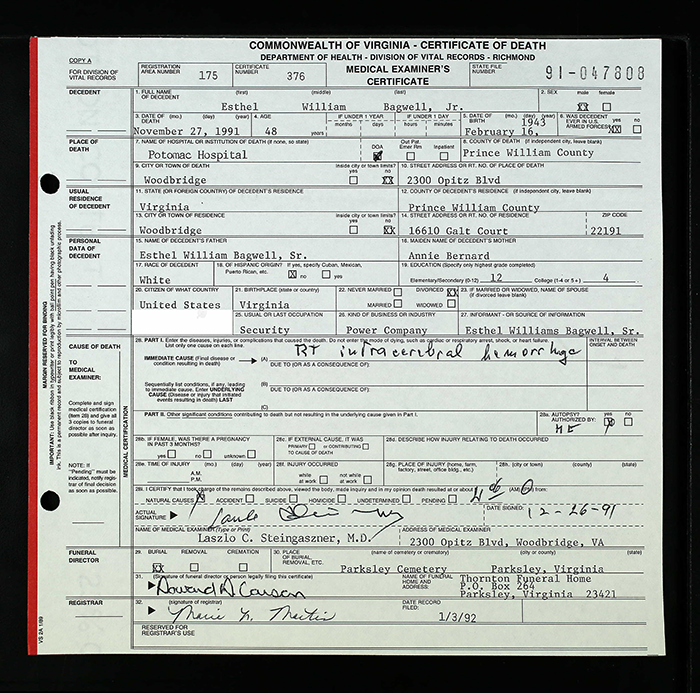 COMMONWEALTH OF VIRGINIA - CERTIFICATE OF DEATH
DEPARTMENT OF HEALTH - DIVISION OF VITAL RECORDS - RICHMOND
COPY A
FOR DIVISION OF VITAL RECORDS
REGISTRATION AREA NUMBER 175
CERTIFICATE NUMBER 376
MEDICAL EXAMINER'S CERTIFICATE
STATE FILE NUMBER 91-047808
DECEDENT
1. FULL NAME OF DECEDENT (first) (middle) (last)
Esthel William Bagwell, Jr.
2. SEX male female
XX
3. DATE OF DEATH (mo.) (day) (year)
November 27, 1991
4. AGE
48 years
IF UNDER 1 YEAR months days
IF UNDER 1 DAY hours minutes
5. DATE OF BIRTH (mo.) (day) (year)
February 16, 1943
6. WAS DECEDENT EVER IN U.S. ARMED FORCES yes no
XX
PLACE OF DEATH
7. NAME OF HOSPITAL OR INSTITUTION OF DEATH (if none, so state)
Potomac Hospital
DOA Out Pat. Emer Rm Inpatient
8. COUNTY OF DEATH (if independent city, leave blank)
Prince William County
9. CITY OR TOWN OF DEATH
Woodbridge
inside city or town limits? yes no
XX
10. STREET ADDRESS OR RT. NO. OF PLACE OF DEATH
2300 Opitz Blvd
USUAL RESIDENCE OF DECEDENT
11. STATE (OR FOREIGN COUNTRY) OF DECEDENT'S RESIDENCE
Virginia
12. COUNTY OF DECEDENT'S RESIDENCE (if independent city, leave blank)
Prince William County
13. CITY OR TOWN OF RESIDENCE
Woodbridge
inside city or town limits? yes no
XX
14. STREET ADDRESS OR RT. NO. OF RESIDENCE ZIP CODE
16610 Galt Court 22191
PERSONAL DATA OF DECEDENT
15. NAME OF DECEDENT'S FATHER
Esthel William Bagwell, Sr.
16. MAIDEN NAME OF DECEDENT'S MOTHER
Annie Bernard
17. RACE OF DECEDENT
White
18. OF HISPANIC ORIGIN? If yes, specify Cuban, Mexican, Puerto Rican, etc.
X no yes
19. EDUCATION (Specify only highest grade completed)
Elementary/Secondary (0-12) 12 College (1-4 or 5+) 4
20. CITIZEN OF WHAT COUNTRY
United States
21. BIRTHPLACE (state or country)
Virginia
22. NEVER MARRIED DIVORCED XX
MARRIED WIDOWED
23. IF MARRIED OR WIDOWED, NAME OF SPOUSE (if divorced leave blank)
25. USUAL OR LAST OCCUPATION
Security
26. KIND OF BUSINESS OR INDUSTRY
Power Company
27. INFORMANT - OR SOURCE OF INFORMATION
Esthel Williams Bagwell, Sr.
CAUSE OF DEATH
TO MEDICAL EXAMINER:
Complete and sign medical certification (item 28) and give all 3 copies to funeral director as soon as possible after inquiry.
NOTE: If "Pending" must be indicated, notify registrar of final decision as soon as possible.
MEDICAL CERTIFICATION
28. PART I. Enter the diseases, injuries, or complications that caused the death. Do not enter the mode of dying, such as cardiac or respiratory arrest, shock, or heart failure. List only one cause on each line.
INTERVAL BETWEEN ONSET AND DEATH
IMMEDIATE CAUSE (Final disease or condition resulting in death) (A) RT intracerebral hemorrhage
DUE TO (OR AS A CONSEQUENCE OF):
Sequentially list conditions, if any, leading to immediate cause. Enter UNDERLYING CAUSE (Disease or injury that initiated events resulting in death) LAST
(B)
DUE TO (OR AS A CONSEQUENCE OF):
(C)
PART II. Other significant conditions contributing to death but not resulting in the underlying cause given in Part I.
28a. AUTOPSY? yes no
AUTHORIZED BY: ME
28b. IF FEMALE, WAS THERE A PREGNANCY IN PAST 3 MONTHS?
yes no unknown
28c. IF EXTERNAL CAUSE, IT WAS
PRIMARY or CONTRIBUTING
TO CAUSE OF DEATH
28d. DESCRIBE HOW INJURY RELATING TO DEATH OCCURRED
28e. TIME OF INJURY (mo.) (day) (year)
A.M.
P.M.
28f. INJURY OCCURRED
while at work not while at work
28g. PLACE OF INJURY (home, farm, factory, street, office bldg., etc.)
28h. (city or town) (county) (state)
28i. I CERTIFY that I took charge of the remains described above, viewed the body, made inquiry and in my opinion death resulted at or about (AM) (PM) from
NATURAL CAUSES ACCIDENT SUICIDE HOMICIDE UNDETERMINED PENDING
ACTUAL SIGNATURE
DATE SIGNED: 12-26-91
NAME OF MEDICAL EXAMINER (Type or Print)
Laszlo C. Steingaszner, M.D.
ADDRESS OF MEDICAL EXAMINER
2300 Opitz Blvd, Woodbridge, VA
FUNERAL DIRECTOR
29. BURIAL REMOVAL CREMATION
XX
30. PLACE OF BURIAL, REMOVAL, ETC. (name of cemetery or crematory) (city or county) (state)
Parksley Cemetery Parksley, Virginia
31. (Signature of funeral director or person legally filing this certificate)
Howard D Carson
NAME OF FUNERAL HOME AND ADDRESS:
Thornton Funeral Home
P.O. Box 264
Parksley, Virginia 23421
REGISTRAR
32. (signature of registrar)
Marie Martin
DATE RECORD FILED:
1/3/92
RESERVED FOR REGISTRAR'S USE
VS 2A 1/89
MARGIN RESERVED FOR BINDING
IMPORTANT: Use black ribbon in typewriter or print legibly with ball point pen having black unfading ink. This is a permanent record and subject to reproduction by microfilm and other photographic process.